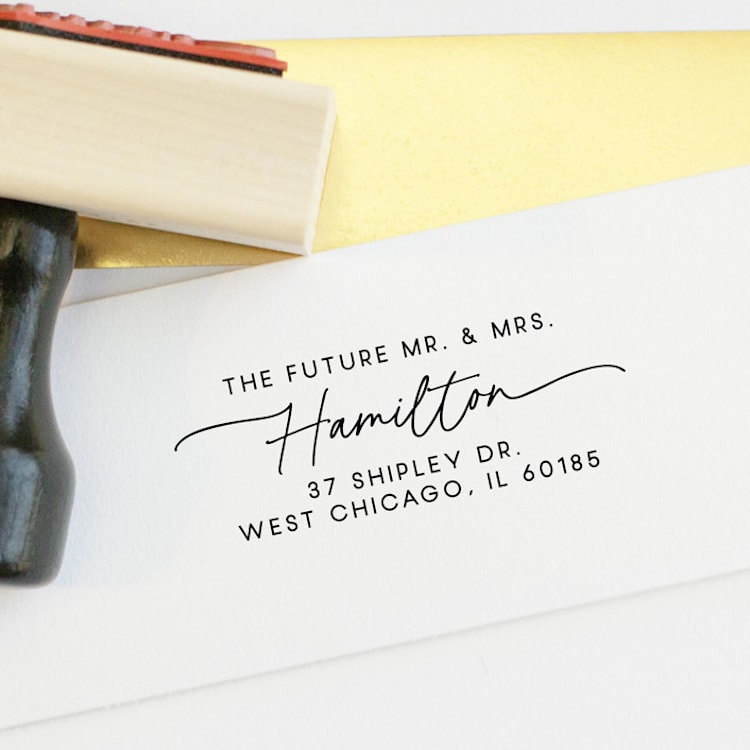 THE FUTURE MR. & MRS.
Hamilton
37 SHIPLEY DR.
WEST CHICAGO, IL 60185